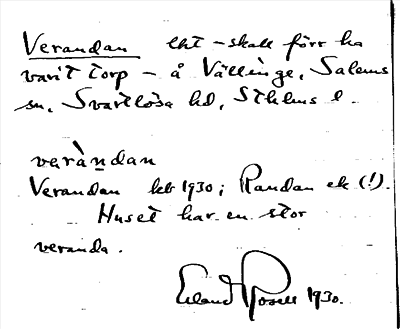 Verandan lht – skall förr ha
varit torp – å Vällinge, Salems
sn, Svartlösa hd, Sthlms l.
veràndan
Verandan kbr 1930; Randan ek (!).
Huset har en stor
veranda.
Erland Rosell 1930.